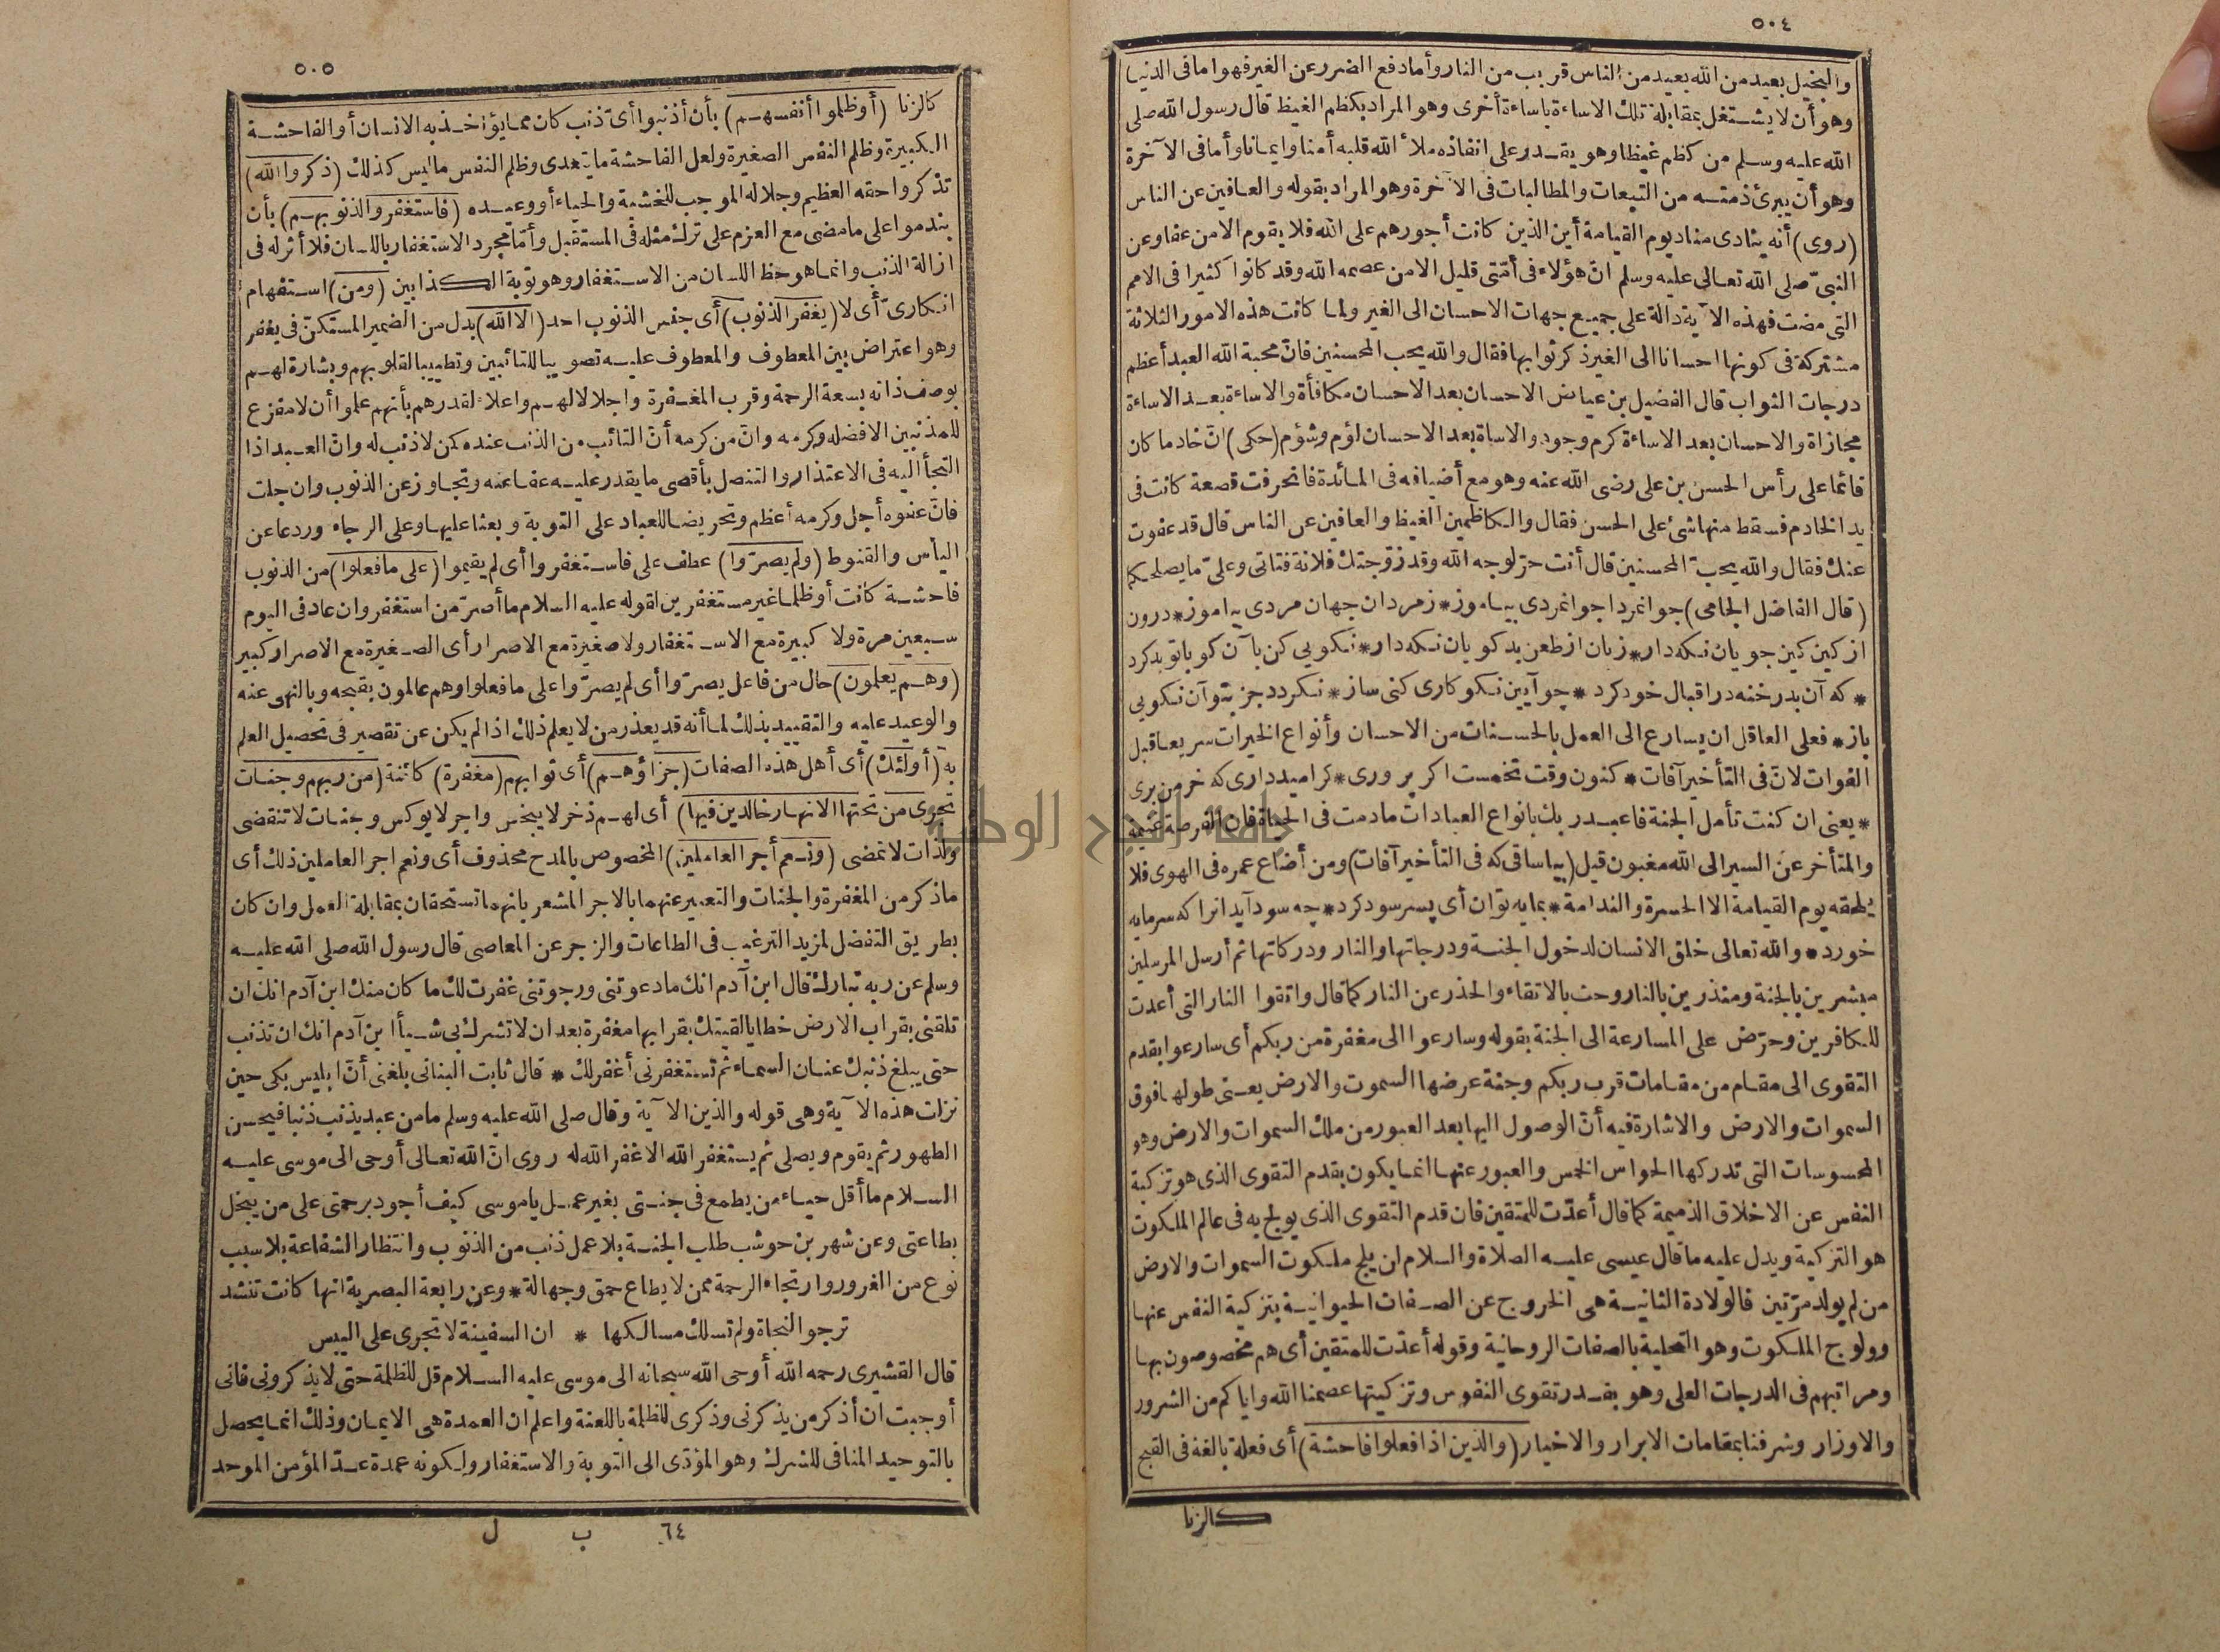 ٥٠٤
والبخيل بعيد من الله بعيد من الناس قريب من النار وأما دفع الضرر عن الغير فهو اما فى الدنيا
وهو أن لا يشتغل بمقابلة تلك الاساءة باساءة أخرى وهو المراد بكظم الغيظ قال رسول الله صلى
الله عليه وسلم من كظم غيظا وهو يقدر على انفاذه ملأ الله قلبه أمنا وايمانا وأما فى الآخرة
وهو أن يبرئ ذمته من التبعات والمطالبات فى الآخرة وهو المراد بقوله والعافين عن الناس
(روى) أنه ينادى مناد يوم القيامة أين الذين كانت أجورهم على الله فلا يقوم الا من عفا وعن
النبىّ صلى الله تعالى عليه وسلم انّ هؤلاء فى أمّتى قليل الا من عصمه الله وقد كانوا كثيرا فى الامم
التى مضت فهذه الآية دالة على جميع جهات الاحسان الى الغير ولما كانت هذه الامور الثلاثة
مشتركة فى كونها احسانا الى الغير ذكر ثوابها فقال والله يحب المحسنين فانّ محبة الله العبد أعظم
درجات الثواب قال الفضيل بن عياض الاحسان بعد الاحسان مكافأة والاساءة بعد الاساءة
مجازاة والاحسان بعد الاساءة كرم وجود والاساة بعد الاحسان لؤم وشؤم (حكى) انّ خادما كان
قائما على رأس الحسن بن على رضى الله عنه وهو مع أضيافه فى المائدة فانحرفت قصعة كانت فى
يد الخادم فسقط منها شئ على الحسن فقال والكاظمين الغيظ والعافين عن الناس قال قد عفوت
عنك فقال والله يحبّ المحسنين قال أنت حرّ لوجه الله وقد زوّجتك فلانة فتاتى وعلىّ ما يصلحكما
(قال الفاضل الجامى) جوانمردا جوانمردى بياموز * زمردان جهان مردى بياموز * درون
از كين كين جويان نكه دار * زبان از طعن بد كويان نكه دار * نكويى كن با آن كو با تو بد كرد
* كه آن بد رخنه در اقبال خود كرد * چو آيين نكو كارى كنى ساز * نكردد جز بتو آن نكويى
باز * فعلى العاقل ان يسارع الى العمل بالحسنات من الاحسان وأنواع الخيرات سريعا قبل
الفوات لانّ فى التأخير آفات * كنون وقت تخمست اكر پرورى * كر اميد دارى كه خرمن برى
* يعنى ان كنت تأمل الجنة فاعبد ربك بانواع العبادات مادمت فى الحياة فان الفرصة غنيمة
والمتأخر عن السير الى الله مغبون قيل (بيا ساقى كه فى التأخير آفات) ومن أضاع عمره فى الهوى فلا
يلحقه يوم القيامة الا الحسرة والندامة * بمايه توان أى پسر سود كرد * چه سود آيد انرا كه سرمايه
خورد * والله تعالى خلق الانسان لدخول الجنة ودرجاتها والنار ودركاتها ثم أرسل المرسلين
مبشرين بالجنة ومنذرين بالنار وحث بالاتقاء والحذر عن النار كما قال واتقوا النار التى أعدت
للكافرين وحرّض على المسارعة الى الجنة بقوله وسارعوا الى مغفرة من ربكم أى سارعوا بقدم
التقوى الى مقام من مقامات قرب ربكم وجنة عرضها السموت والارض يعنى طولها فوق
السموات والارض والاشارة فيه أنّ الوصول اليها بعد العبور من ملك السموات والارض وهو
المحسوسات التى تدركها الحواس الخمس والعبور عنها انما يكون بقدم التقوى الذى هو تزكية
النفس عن الاخلاق الذميمة كما قال أعدّت للمتقين فان قدم التقوى الذى يولج به فى عالم الملكوت
هو التزكية ويدل عليه ما قال عيسى عليه الصلاة والسلام لن يلج ملكوت السموات والارض
من لم يولد مرّتين فالولادة الثانية هى الخروج عن الصفات الحيوانية بتزكية النفس عنها
وولوج الملكوت وهو التحلية بالصفات الروحانية وقوله أعدّت للمتقين أى هم مخصوصون بها
ومراتبهم فى الدرجات العلى وهو بقدر تقوى النفوس وتزكيتها عصمنا الله واياكم من الشرور
والاوزار وشرفنا بمقامات الابرار والاخيار (والذين اذا فعلوا فاحشة) أى فعلة بالغة فى القبح
كالزنا
٥٠٥
كالزنا (أو ظلموا أنفسهم) بأن أذنبوا أىّ ذنب كان مما يؤاخذ به الانسان أو الفاحشة
الكبيرة وظلم النفس الصغيرة ولعل الفاحشة ما يتعدى وظلم النفس ما ليس كذلك (ذكروا الله)
تذكروا حقه العظيم وجلاله الموجب للخشية والحياء أو وعيده (فاستغفروا لذنوبهم) بأن
يندموا على ما مضى مع العزم على ترك مثله فى المستقبل وأمّا مجرد الاستغفار باللسان فلا أثر له فى
ازالة الذنب وانما هو حظ اللسان من الاستغفار وهو توبة الكذابين (ومن) استفهام
انكارىّ أى لا (يغفر الذنوب) أى جنس الذنوب احد (الا الله) بدل من الضمير المستكنّ فى يغفر
وهو اعتراض بين المعطوف والمعطوف عليه تصويبا للتائبين وتطييبا لقلوبهم وبشارة لهم
بوصف ذاته بسعة الرحمة وقرب المغفرة واجلالا لهم واعلاء لقدرهم بأنهم علموا أن لا مفزع
للمذنبين الا فضله وكرمه وانّ من كرمه أنّ التائب من الذنب عنده كمن لا ذنب له وانّ العبد اذا
التجأ اليه فى الاعتذار والتنصل بأقصى ما يقدر عليه عفا عنه وتجاوز عن الذنوب وان جلت
فانّ عفوه أجل وكرمه أعظم وتحريضا للعباد على التوبة وبعثا عليها وعلى الرجاء وردعا عن
اليأس والقنوط (ولم يصرّوا) عطف على فاستغفروا أى لم يقيموا (على ما فعلوا) من الذنوب
فاحشة كانت أو ظلما غير مستغفرين لقوله عليه السلام ما أصرّ من استغفر وان عاد فى اليوم
سبعين مرة ولا كبيرة مع الاستغفار ولا صغيرة مع الاصرار أى الصغيرة مع الاصرار كبيرة
(وهم يعلمون) حال من فاعل يصرّوا أى لم يصرّوا على ما فعلوا وهم عالمون بقبحه وبالنهى عنه
والوعيد عليه والتقييد بذلك لما أنه قد يعذر من لا يعلم ذلك اذا لم يكن عن تقصير فى تحصيل العلم
به (أولئك) أى أهل هذه الصفات (جزاؤهم) أى ثوابهم (مغفرة) كائنة (من ربهم وجنات
تجرى من تحتها الانهار خالدين فيها) أى لهم ذخر لا يبخس واجر لا يوكس وجنات لا تنقضى
ولذات لا تمضى (ونعم أجر العاملين) المخصوص بالمدح محذوف أى ونعم اجر العاملين ذلك أى
ماذكر من المغفرة والجنات والتعبير عنهما بالاجر المشعر بانهما تستحقان بمقابلة العمل وان كان
بطريق التفضل لمزيد الترغيب فى الطاعات والزجر عن المعاصى قال رسول الله صلى الله عليه
وسلم عن ربه تبارك قال ابن آدم انك ما دعوتنى ورجوتنى غفرت لك ما كان منك ابن آدم انك ان
تلقنى بقراب الارض خطايا لقيتك بقرابها مغفرة بعد ان لا تشرك بى شيأ ابن آدم انك ان تذنب
حتى يبلغ ذنبك عنان السماء ثم تستغفرنى أغفر لك * قال ثابت البنانى بلغنى أنّ ابليس بكى حين
نزلت هذه الآية وهى قوله والذين الآية وقال صلى الله عليه وسلم ما من عبد يذنب ذنبا فيحسن
الطهور ثم يقوم ويصلى ثم يستغفر الله الا غفر الله له روى انّ الله تعالى أوحى الى موسى عليه
السلام ما أقل حياء من يطمع فى جنتى بغير عمل يا موسى كيف أجود برحمتى على من يبخل
بطاعتى وعن شهر بن حوشب طلب الجنة بلا عمل ذنب من الذنوب وانتظار الشفاعة بلا سبب
نوع من الغرور وارتجاء الرحمة ممن لا يطاع حمق وجهالة * وعن رابعة البصرية انها كانت تنشد
ترجو النجاة ولم تسلك مسالكها * ان السفينة لا تجرى على اليبس
قال القشيرى رحمه الله أوحى الله سبحانه الى موسى عليه السلام قل للظلمة حتى لا يذكرونى فانى
أوجبت ان أذكر من يذكرنى وذكرى للظلمة باللعنة واعلم ان العمدة هى الايمان وذلك انما يحصل
بالتوحيد المنافى للشرك وهو المؤدّى الى التوبة والاستغفار ولكونه عمدة عدّ المؤمن الموحد
٦٤ ب ل
جامعة النجاح الوطنية